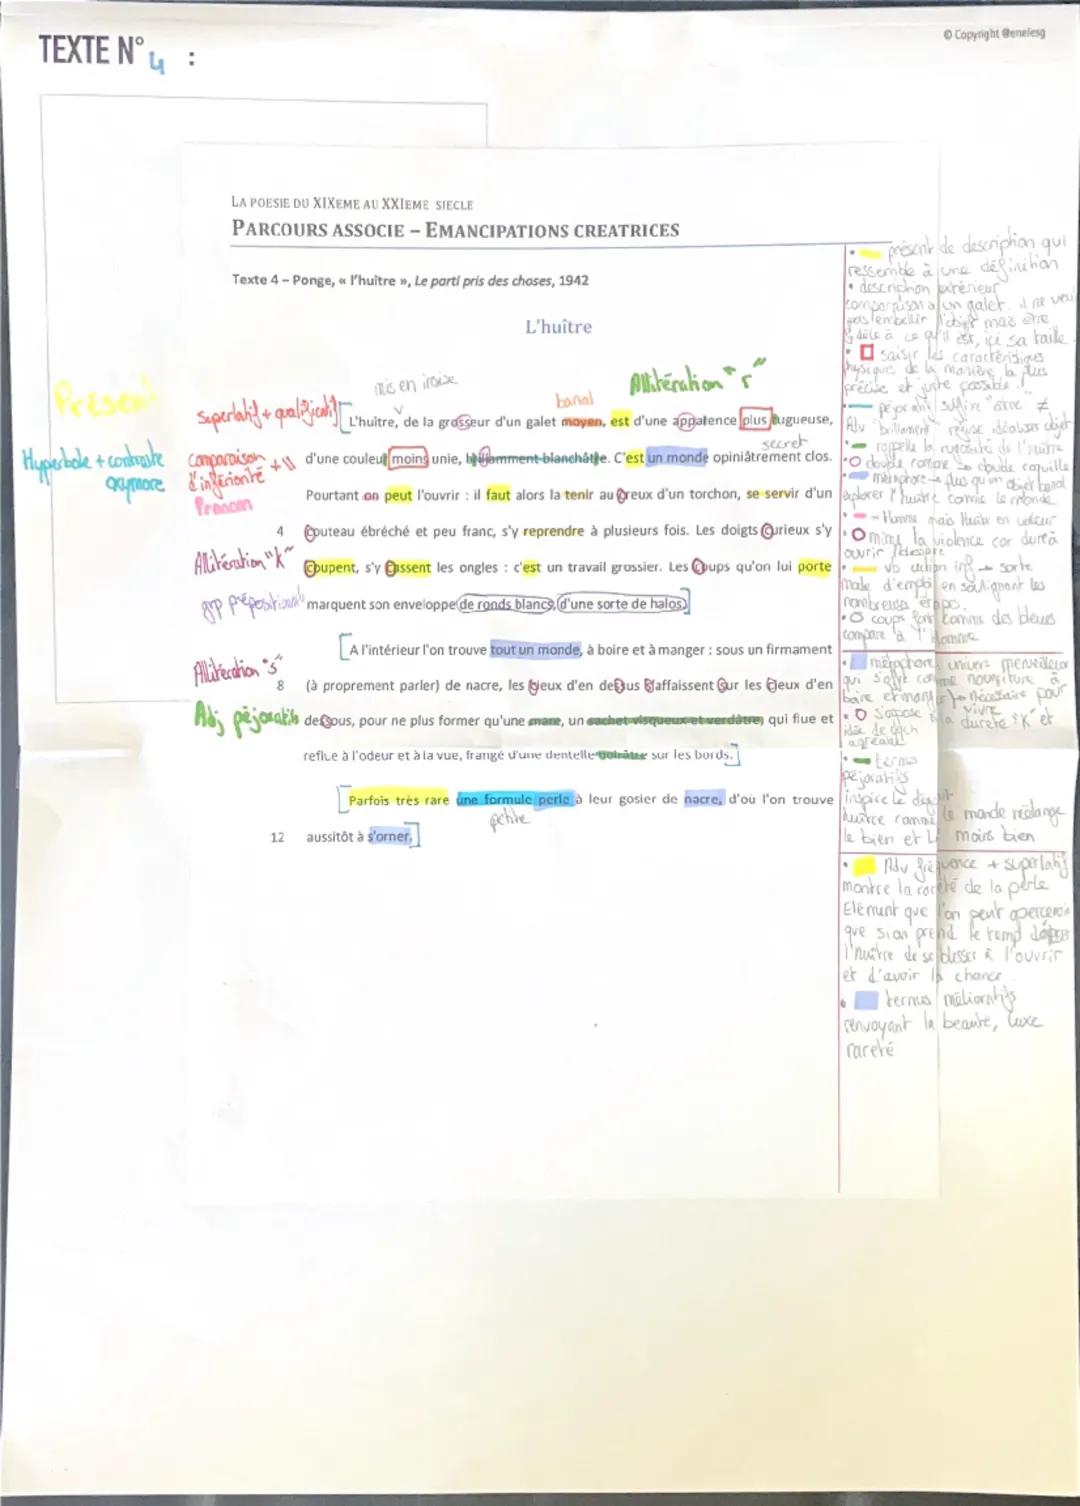 © Copyright @enelesg
TEXTE N° 4 :
LA POESIE DU XIXEME AU XXIEME SIECLE
PARCOURS ASSOCIE – EMANCIPATIONS CREATRICES
Texte 4 – Ponge, « l'huître », Le parti pris des choses, 1942
L'huître
mis en
Allitération "r"
Présent
Superlatif + qualificatif
banal
L'huître, de la grosseur d'un galet moyen, est d'une apparence plus rugueuse,
secret
Hyperbole + contraste
oxymore
comparaison + 11
d'infériorité
Pronom
d'une couleur moins unie, brillamment blanchâtre. C'est un monde opiniâtrement clos.
Pourtant on peut l'ouvrir : il faut alors la tenir au creux d'un torchon, se servir d'un
4 couteau ébréché et peu franc, s'y reprendre à plusieurs fois. Les doigts curieux s'y
Allitération "K"
coupent, s'y cassent les ongles : c'est un travail grossier. Les coups qu'on lui porte
grp prépositionnel
marquent son enveloppe de ronds blancs, d'une sorte de halos.
A l'intérieur l'on trouve tout un monde, à boire et à manger : sous un firmament
Allitération "s"
8 (à proprement parler) de nacre, les cieux d'en dessus s'affaissent sur les cieux d'en
Adj péjoratifs
dessous, pour ne plus former qu'une mare, un sachet visqueux et verdâtre, qui flue et
reflue à l'odeur et à la vue, frangé d'une dentelle noirâtre sur les bords.
Parfois très rare une formule perle à leur gosier de nacre, d'où l'on trouve
petite
12 aussitôt à s'orner.
• présent de description qui
ressemble à une définition
• description extérieur
comparaison à un galet. il ne veut
pas embellir l'objet mais être
fidèle à ce qu'il est, ici sa taille
• saisir les caractéristiques
physiques de la manière la plus
précise et juste possible.
• péjoratif suffixe "âtre" ≠
Adv "brillament" refuse idéaliser objet
• rappelle la rugosité de l'huître
• double consonne double coquille
• métaphore → plus qu'un objet banal
explorer l'huître comme le monde
• - Homme mais huître en valeur
• mime la violence car dur à
ouvrir
• vb action inf → sorte
mode d'emploi en soulignant les
nombreuses étapes.
• coups font comme des bleus
compare à l'Homme
• métaphore, univers merveilleux
qui s'offre comme nourriture à
boire et manger → nécessaire pour
vivre
• s'oppose à la dureté "K" et
idée de qch
agréable
• termes
péjoratifs
inspire le dégoût
huître comme le monde mélange
le bien et le moins bien
• Adv fréquence + superlatif
montre la rareté de la perle
Elément que l'on peut apercevoir
que si on prend le temp
l'huître de se blesser à l'ouvrir
et d'avoir la chance.
• termes mélioratifs
renvoyant la beauté, luxe
rareté